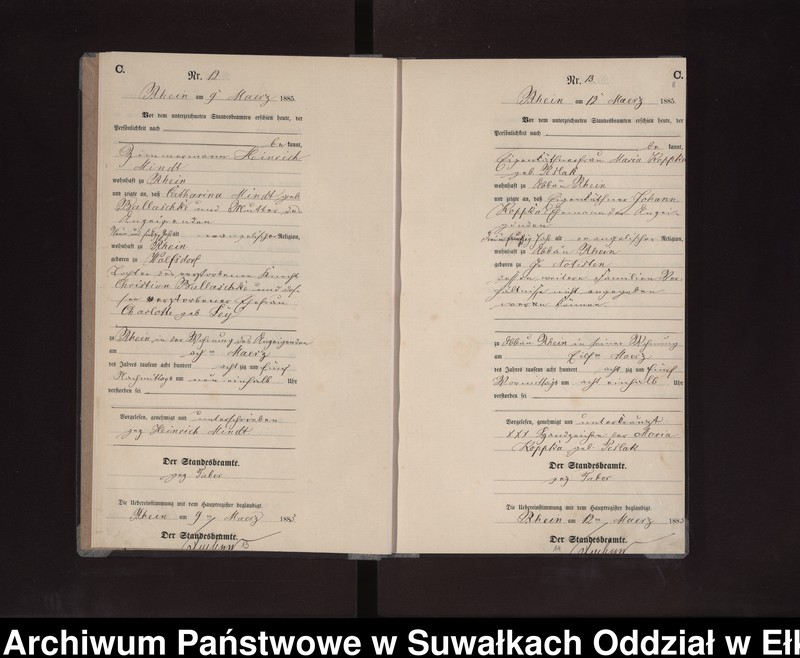 C.
Nr. 12
Rhein am 9 Maerz 1885.
Vor dem unterzeichneten Standesbeamten erschien heute, der
Persönlichkeit nach
be kannt,
Zimmermann Heinrich
Mindt
wohnhaft zu Rhein
und zeigte an, daß Catharina Mindt geb
Ballaschke und Mutter des
Anzeigenden
alt evangelischer Religion,
wohnhaft zu Rhein
geboren zu Wolfsdorf
Tochter des verstorbenen Knecht
Christian Ballaschke und des
sen verstorbener Ehefrau
Charlotte geb
zu Rhein in der Wohnung des Anzeigenden
am acht ten Maerz
des Jahres tausend acht hundert acht zig und fünf
Nachmittags um neun einhalb Uhr
verstorben sei
Vorgelesen, genehmigt und unterschrieben
gez Heinrich Mindt
Der Standesbeamte.
gez Faber
Die Uebereinstimmung mit dem Hauptregister beglaubigt.
Rhein am 9 ten Maerz 1885.
Der Standesbeamte.
C.
Nr. 13
Rhein am 12 Maerz 1885.
Vor dem unterzeichneten Standesbeamten erschien heute, der
Persönlichkeit nach
be kannt,
Eigenkäthnerfrau Maria Köppka
geb Peslak
wohnhaft zu Abbau Rhein
und zeigte an, daß Eigenkäthner Johann
Köppka Ehemann der Anzei-
genden
Jahre alt evangelischer Religion,
wohnhaft zu Abbau Rhein
geboren zu
dessen weitere Familien Ver
hältnisse nicht angegeben
werden können.
zu Abbau Rhein in seiner Wohnung
am Elf ten Maerz
des Jahres tausend acht hundert acht zig und fünf
Vormittags um acht einhalb Uhr
verstorben sei
Vorgelesen, genehmigt und unterkreuzt
XXX Handzeichen der Maria
Köppka geb Peslak
Der Standesbeamte.
gez Faber
Die Uebereinstimmung mit dem Hauptregister beglaubigt.
Rhein am 12 ten Maerz 1885
Der Standesbeamte.
Archiwum Państwowe w Suwałkach Oddział w Ełk